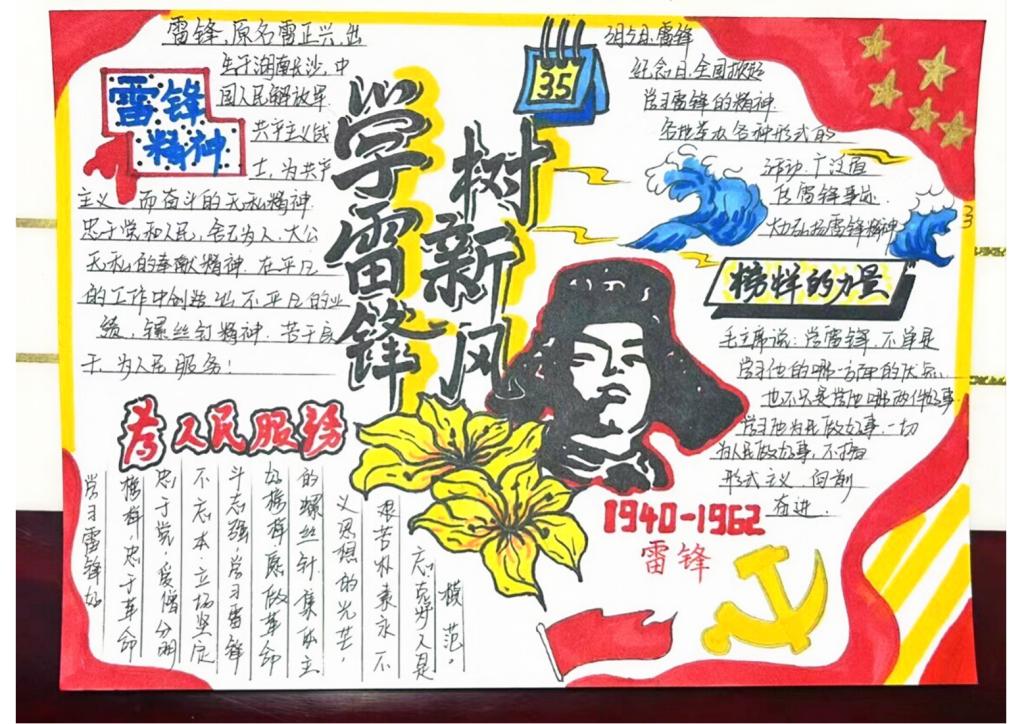 雷锋，原名雷正兴，出
生于湖南长沙，中
国人民解放军
共产主义战
士，为共产
主义而奋斗的无私精神
忠于党和人民，舍己为人、大公
无私的奉献精神．在平凡
的工作中创造出不平凡的业
绩，螺丝钉精神．苦干实
干，为人民服务！
雷锋
精神
学雷锋
树新风
35
3月5日雷锋
纪念日，全国掀起
学习雷锋的精神．
各地举办各种形式的
活动．广泛宣
传雷锋事迹．
大力弘扬雷锋精神
榜样的力量
毛主席说：学雷锋，不单是
学习他的哪一方面的优点，
也不只是学他哪两件好事
学习他为民做好事．一切
为人民做好事，不搞
形式主义 向前
奋进．
为人民服务
学习雷锋好
榜样，忠于革命
忠于党，爱憎分明
不忘本，立场坚定
斗志强，学习雷锋
好榜样愿做革命
的螺丝钉．集体主
义思想的光芒，
艰苦朴素永不
忘克
人是
模范。
1940-1962
雷锋